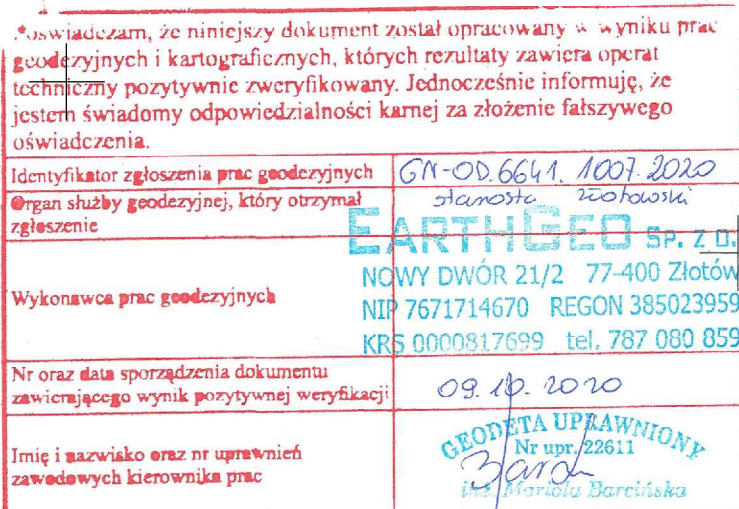 Poświadczam, że niniejszy dokument został opracowany w wyniku prac
geodezyjnych i kartograficznych, których rezultaty zawiera operat
techniczny pozytywnie zweryfikowany. Jednocześnie informuję, że
jestem świadomy odpowiedzialności karnej za złożenie fałszywego
oświadczenia.
Identyfikator zgłoszenia prac geodezyjnych
GN-OD.6641.1007.2020
Organ służby geodezyjnej, który otrzymał
zgłoszenie
starosta złotowski
Wykonawca prac geodezyjnych
EARTHGEO SP. Z O.
NOWY DWÓR 21/2 77-400 Złotów
NIP 7671714670 REGON 385023959
KRS 0000817699 tel. 787 080 859
Nr oraz data sporządzenia dokumentu
zawierającego wynik pozytywnej weryfikacji
09.10.2020
Imię i nazwisko oraz nr uprawnień
zawodowych kierownika prac
GEODETA UPRAWNIONY
Nr upr. 22611
inż. Mariola Barcińska